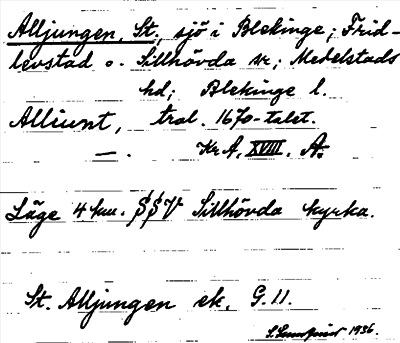 Alljungen, St. sjö i Blekinge; Frid-
levstad o. Sillhövda sr; Medelstads
hd; Blekinge l.
Alliunt, trol. 1670-talet.
—. Kr A. XVIII. A:
Läge 4 km. SSV Sillhövda kyrka.
St. Alljungen ek. G. 11.
1936.